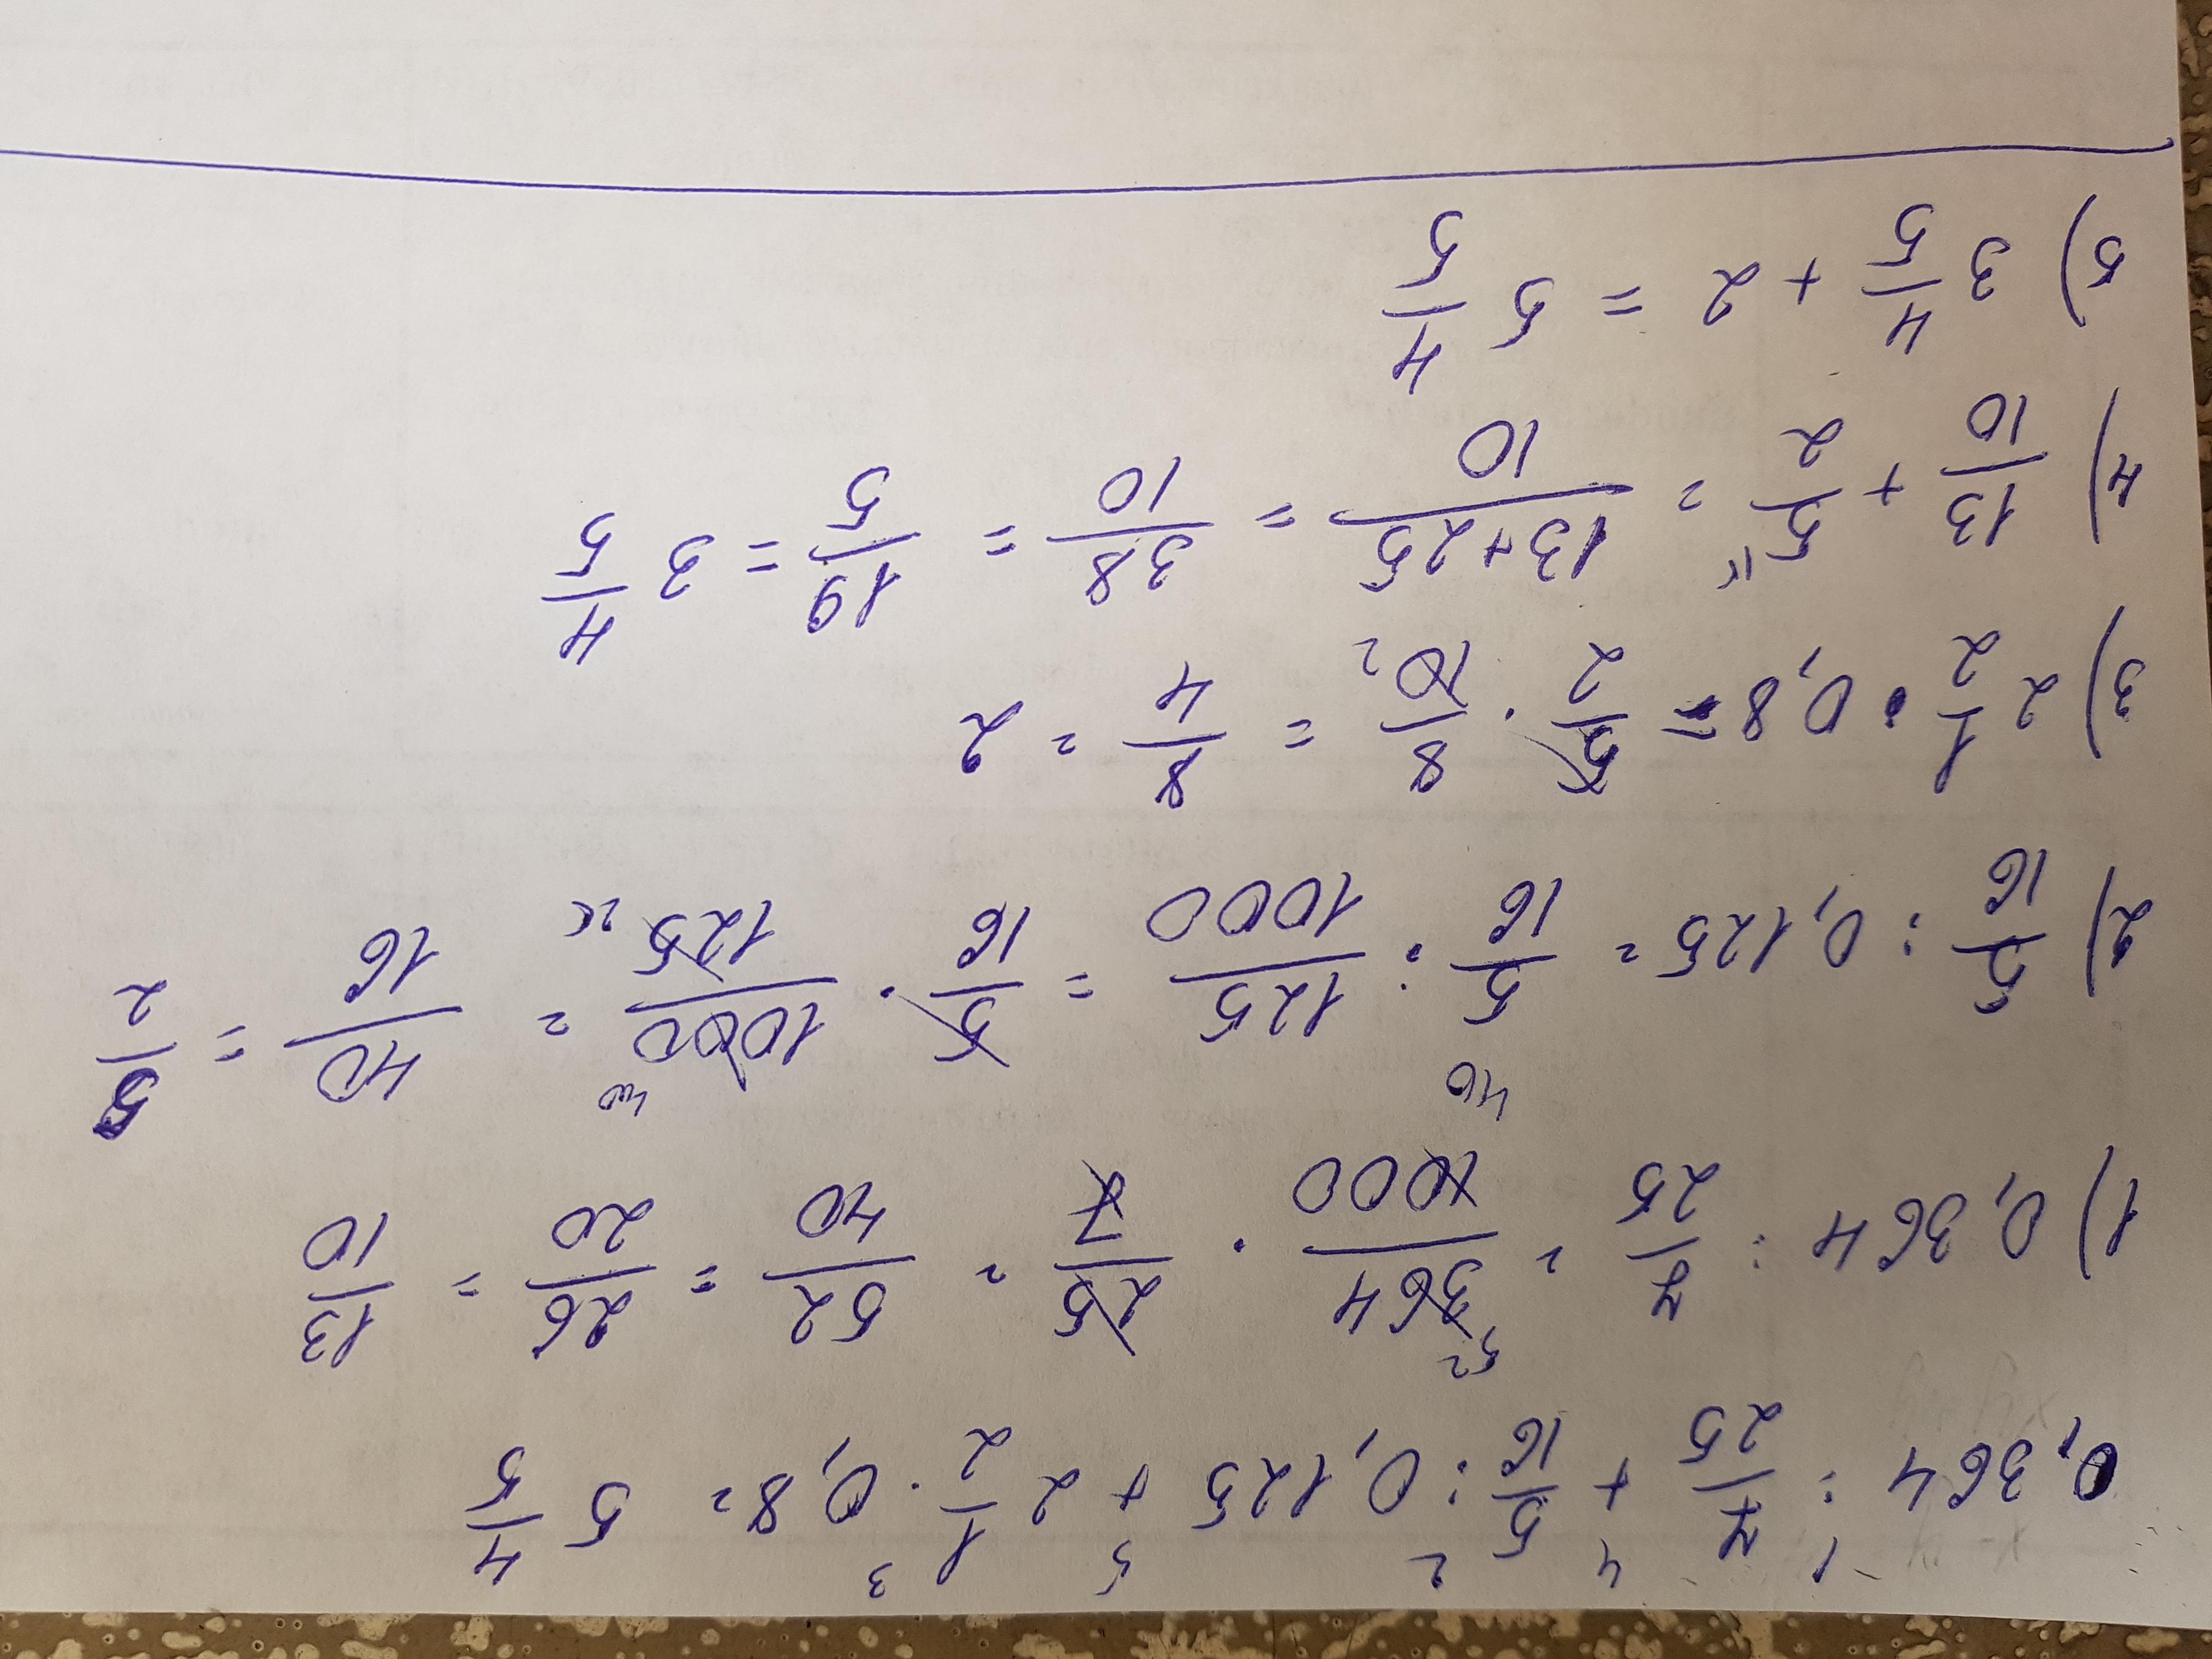 1 4 2 5 3
0,364 : 7/25 + 5/16 : 0,125 + 2 1/2 · 0,8 = 5 4/5
1) 0,364 : 7/25 = 364/1000 · 25/7 = 52/40 = 26/20 = 13/10
52
40
2) 5/16 : 0,125 = 5/16 : 125/1000 = 5/16 · 1000/125 = 40/16 = 5/2
40
25
3) 2 1/2 · 0,8 = 5/2 · 8/10 = 8/4 = 2
2
4) 13/10 + 5/2 = 13+25/10 = 38/10 = 19/5 = 3 4/5
5) 3 4/5 + 2 = 5 4/5